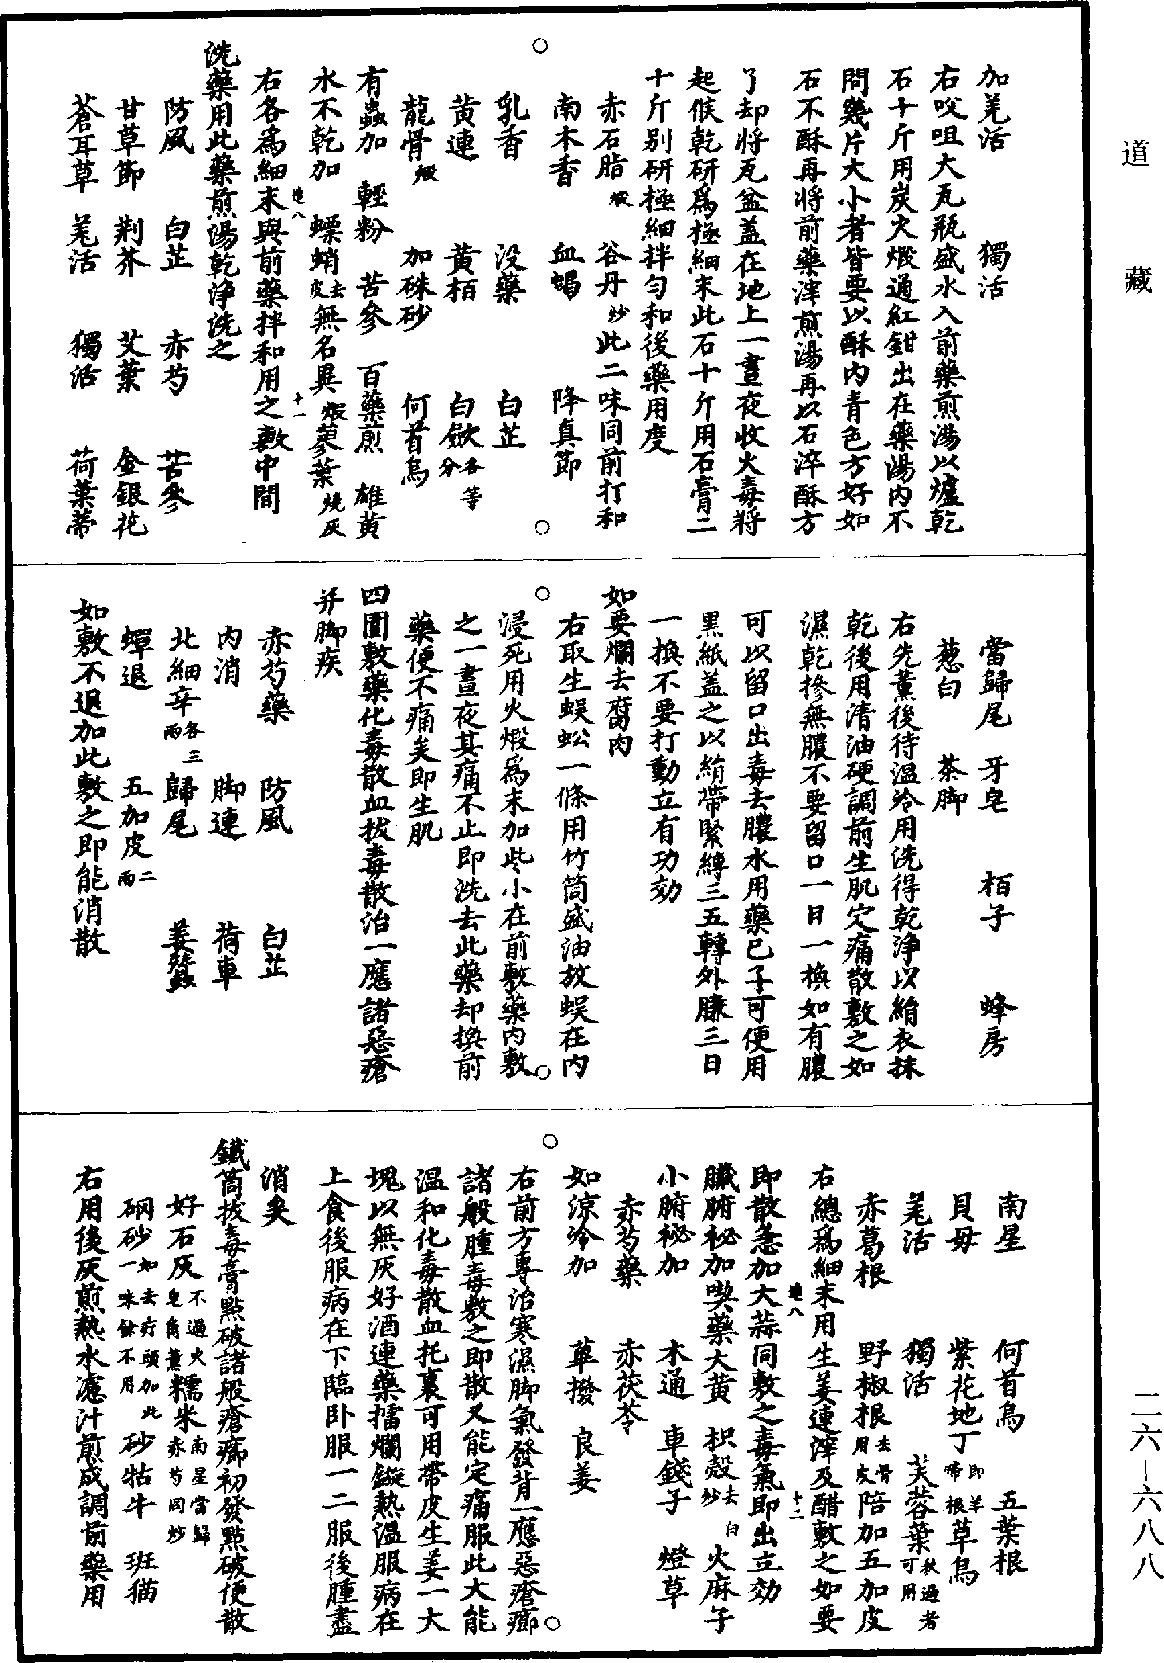 道藏
加羌活　獨活
右㕮咀大瓦瓶盛水入前藥煎湯以爐乾
石十斤用炭火煅通紅鉗出在藥湯內不
問幾片大小者皆要以酥內青色方好如
石不酥再將前藥滓煎湯再以石淬酥方
了却將瓦盆蓋在地上一晝夜收火毒將
起候乾研爲極細末此石十斤用石膏二
十斤别研極細拌勻和後藥用度
赤石脂煅　谷丹炒此二味同前打和
南木香　血竭　降真節
乳香　没藥　白芷
黄連　黄栢　白斂各等分
龍骨煅　加硃砂　何首烏
有蟲加　輕粉　苦參　百藥煎　雄黄
水不乾加　螵蛸去皮無名異煅蓼葉燒灰
右各爲細末與前藥拌和用之敷中間
洗藥用此藥煎湯乾淨洗之
防風　白芷　赤芍　苦參
甘草節　荆芥　艾葉　金銀花
蒼耳草　羌活　獨活　荷葉蒂
當歸尾　牙皂　栢子　蜂房
葱白　茶脚
右先薰後待溫冷用洗得乾淨以絹衣抹
乾後用清油硬調前生肌定痛散敷之如
濕乾摻無膿不要留口一日一換如有膿
可以留口出毒去膿水用藥已了可便用
黑紙蓋之以絹帶緊縛三五轉外臁三日
一換不要打動立有功効
如要爛去腐肉
右取生蜈蚣一條用竹筒盛油放蜈在內
浸死用火煅爲末加些小在前敷藥內敷
之一晝夜其痛不止即洗去此藥却換前
藥便不痛矣即生肌
四圍敷藥化毒散血拔毒散治一應諸惡瘡
并脚疾
赤芍藥　防風　白芷
內消　脚連　荷車
北細辛各三兩歸尾　姜蠶
蟬退　五加皮二兩
如敷不退加此敷之即能消散
南星　何首烏　五葉根
貝母　紫花地丁即羊蹄根草烏
羌活　獨活　芙蓉葉秋過者可用
赤葛根　野椒根去骨用皮陪加五加皮
右總爲細末用生姜連滓及醋敷之如要
即散急加大蒜同敷之毒氣即出立効
臟腑秘加喫藥大黄　枳殼去白炒　火麻子
小腑秘加　木通　車錢子　燈草
赤芍藥　赤茯苓
如涼冷加　蓽撥　良姜
右前方專治寒濕脚氣發背一應惡瘡癤
諸般腫毒敷之即散又能定痛服此大能
溫和化毒散血托裏可用帶皮生姜一大
塊以無灰好酒連藥擂爛鏇熱溫服病在
上食後服病在下臨卧服一二服後腫盡
消矣
鐵筒拔毒膏點破諸般瘡癤初發點破便散
好石灰不過火皂角薰糯米南星當歸赤芍同炒
硇砂如去疔頭加此一味餘不用砂牯牛　班猫
右用後灰煎熱水濾汁煎成調前藥用
二六—六八八